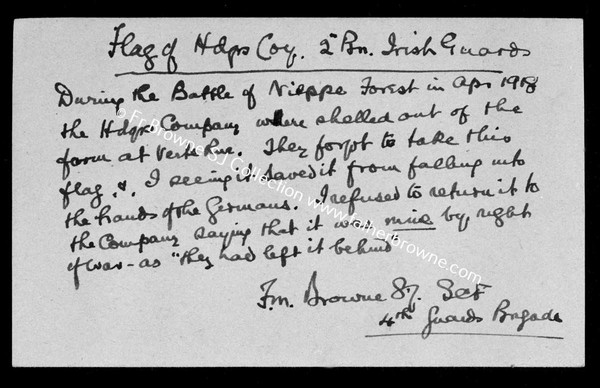 Flag of Hdqrs Coy. 2nd Bn. Irish Guards
During the Battle of Nieppe Forest in Apr 1918
the Hdqrs Company were shelled out of the
farm at Verte Rue. They forgot to take this
flag. I seeing it saved it from falling into
the hands of the Germans. I refused to return it to
the Company saying that it was mine by right
of war - as "they had left it behind"
F.M. Browne SJ.
4th Guards Brigade
© Fr Browne SJ Collection www.fatherbrowne.com